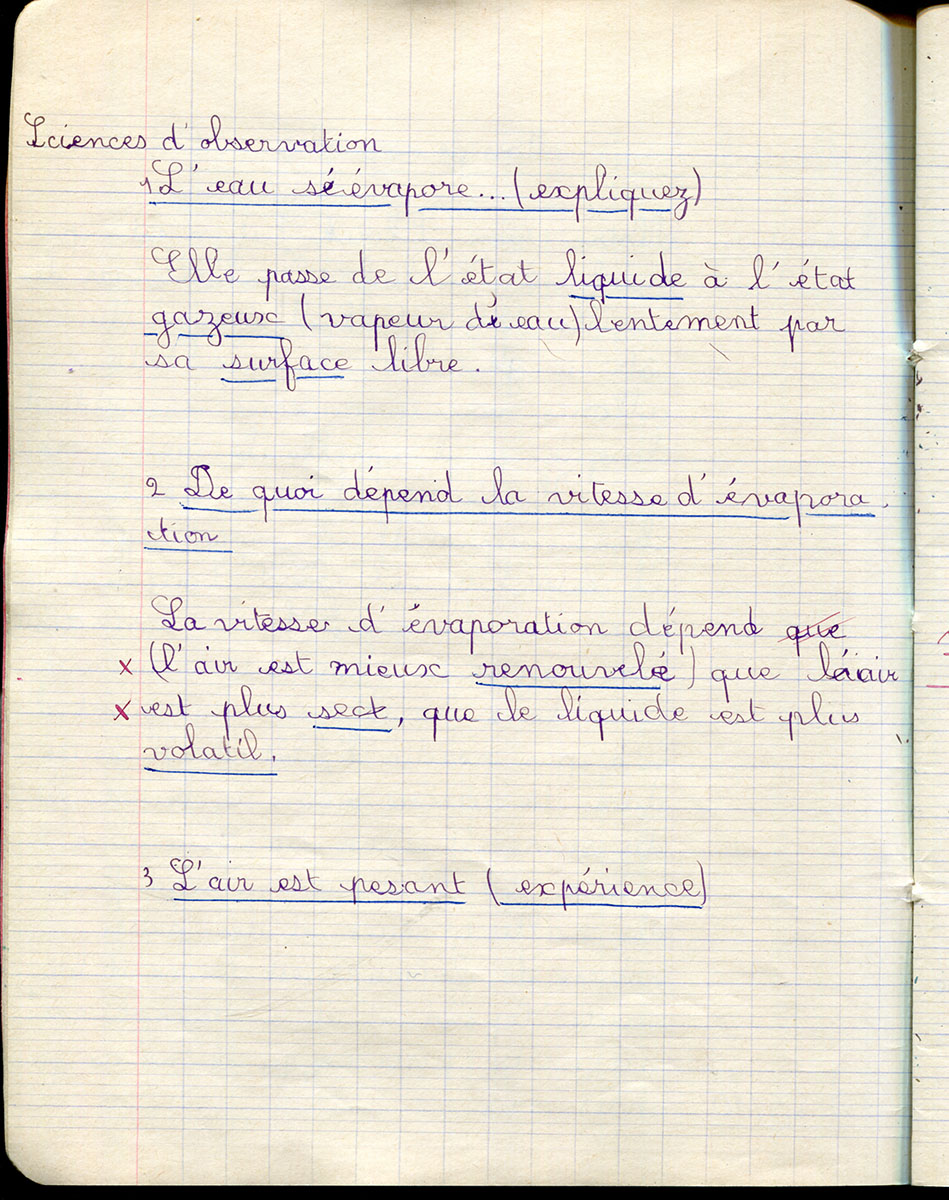 Sciences d'observation
1 L'eau s'évapore... (expliquez)
Elle passe de l'état liquide à l'état
gazeux (vapeur d'eau) lentement par
sa surface libre.
2 De quoi dépend la vitesse d'évapora
tion
La vitesse d'évaporation dépend que
x (l'air est mieux renouvelé) que l'air
x est plus sec, que le liquide est plus
volatil.
3 L'air est pesant (expérience)